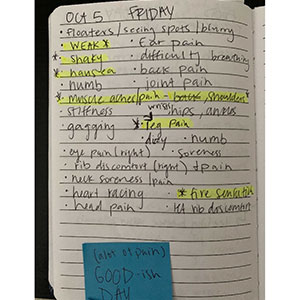 OCT 5 FRIDAY
• floaters/seeing spots/blurry
• WEAK * • Ear pain
* • Shaky • difficulty breathing
* • nausea • back pain
• numb • joint pain
* • muscle ache/pain - back shoulders *
stiffness wrists, hips, ankles
• gagging * • leg pain
• dizzy • numb
• eye pain (right) • soreness
• rib discomfort (right) + pain
• neck soreness/pain
• heart racing * • fire sensation
• head pain • rib discomfort
(alot of pain)
GOOD-ish
DAY